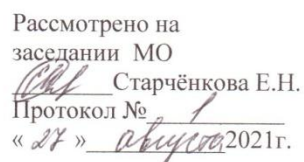 Рассмотрено на
заседании МО
Старчёнкова Е.Н.
Протокол № 1
« 27 » августа 2021г.